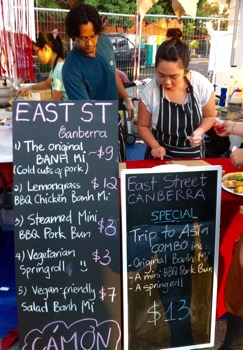 EAST ST
Canberra
1) The original
BANH MI ~ $9
(Cold cuts of pork)
2) Lemongrass $12
BBQ Chicken Banh Mi
3) Steamed Mini $3
BBQ Pork Bun
4) Vegetarian $3
Springroll :)
5) Vegan-friendly $7
Salad Banh Mi
CAMON
East Street
CANBERRA
SPECIAL
Trip to Asia
COMBO inc:
- Original Banh Mi
- A mini BBQ Pork Bun
- A springroll
$13